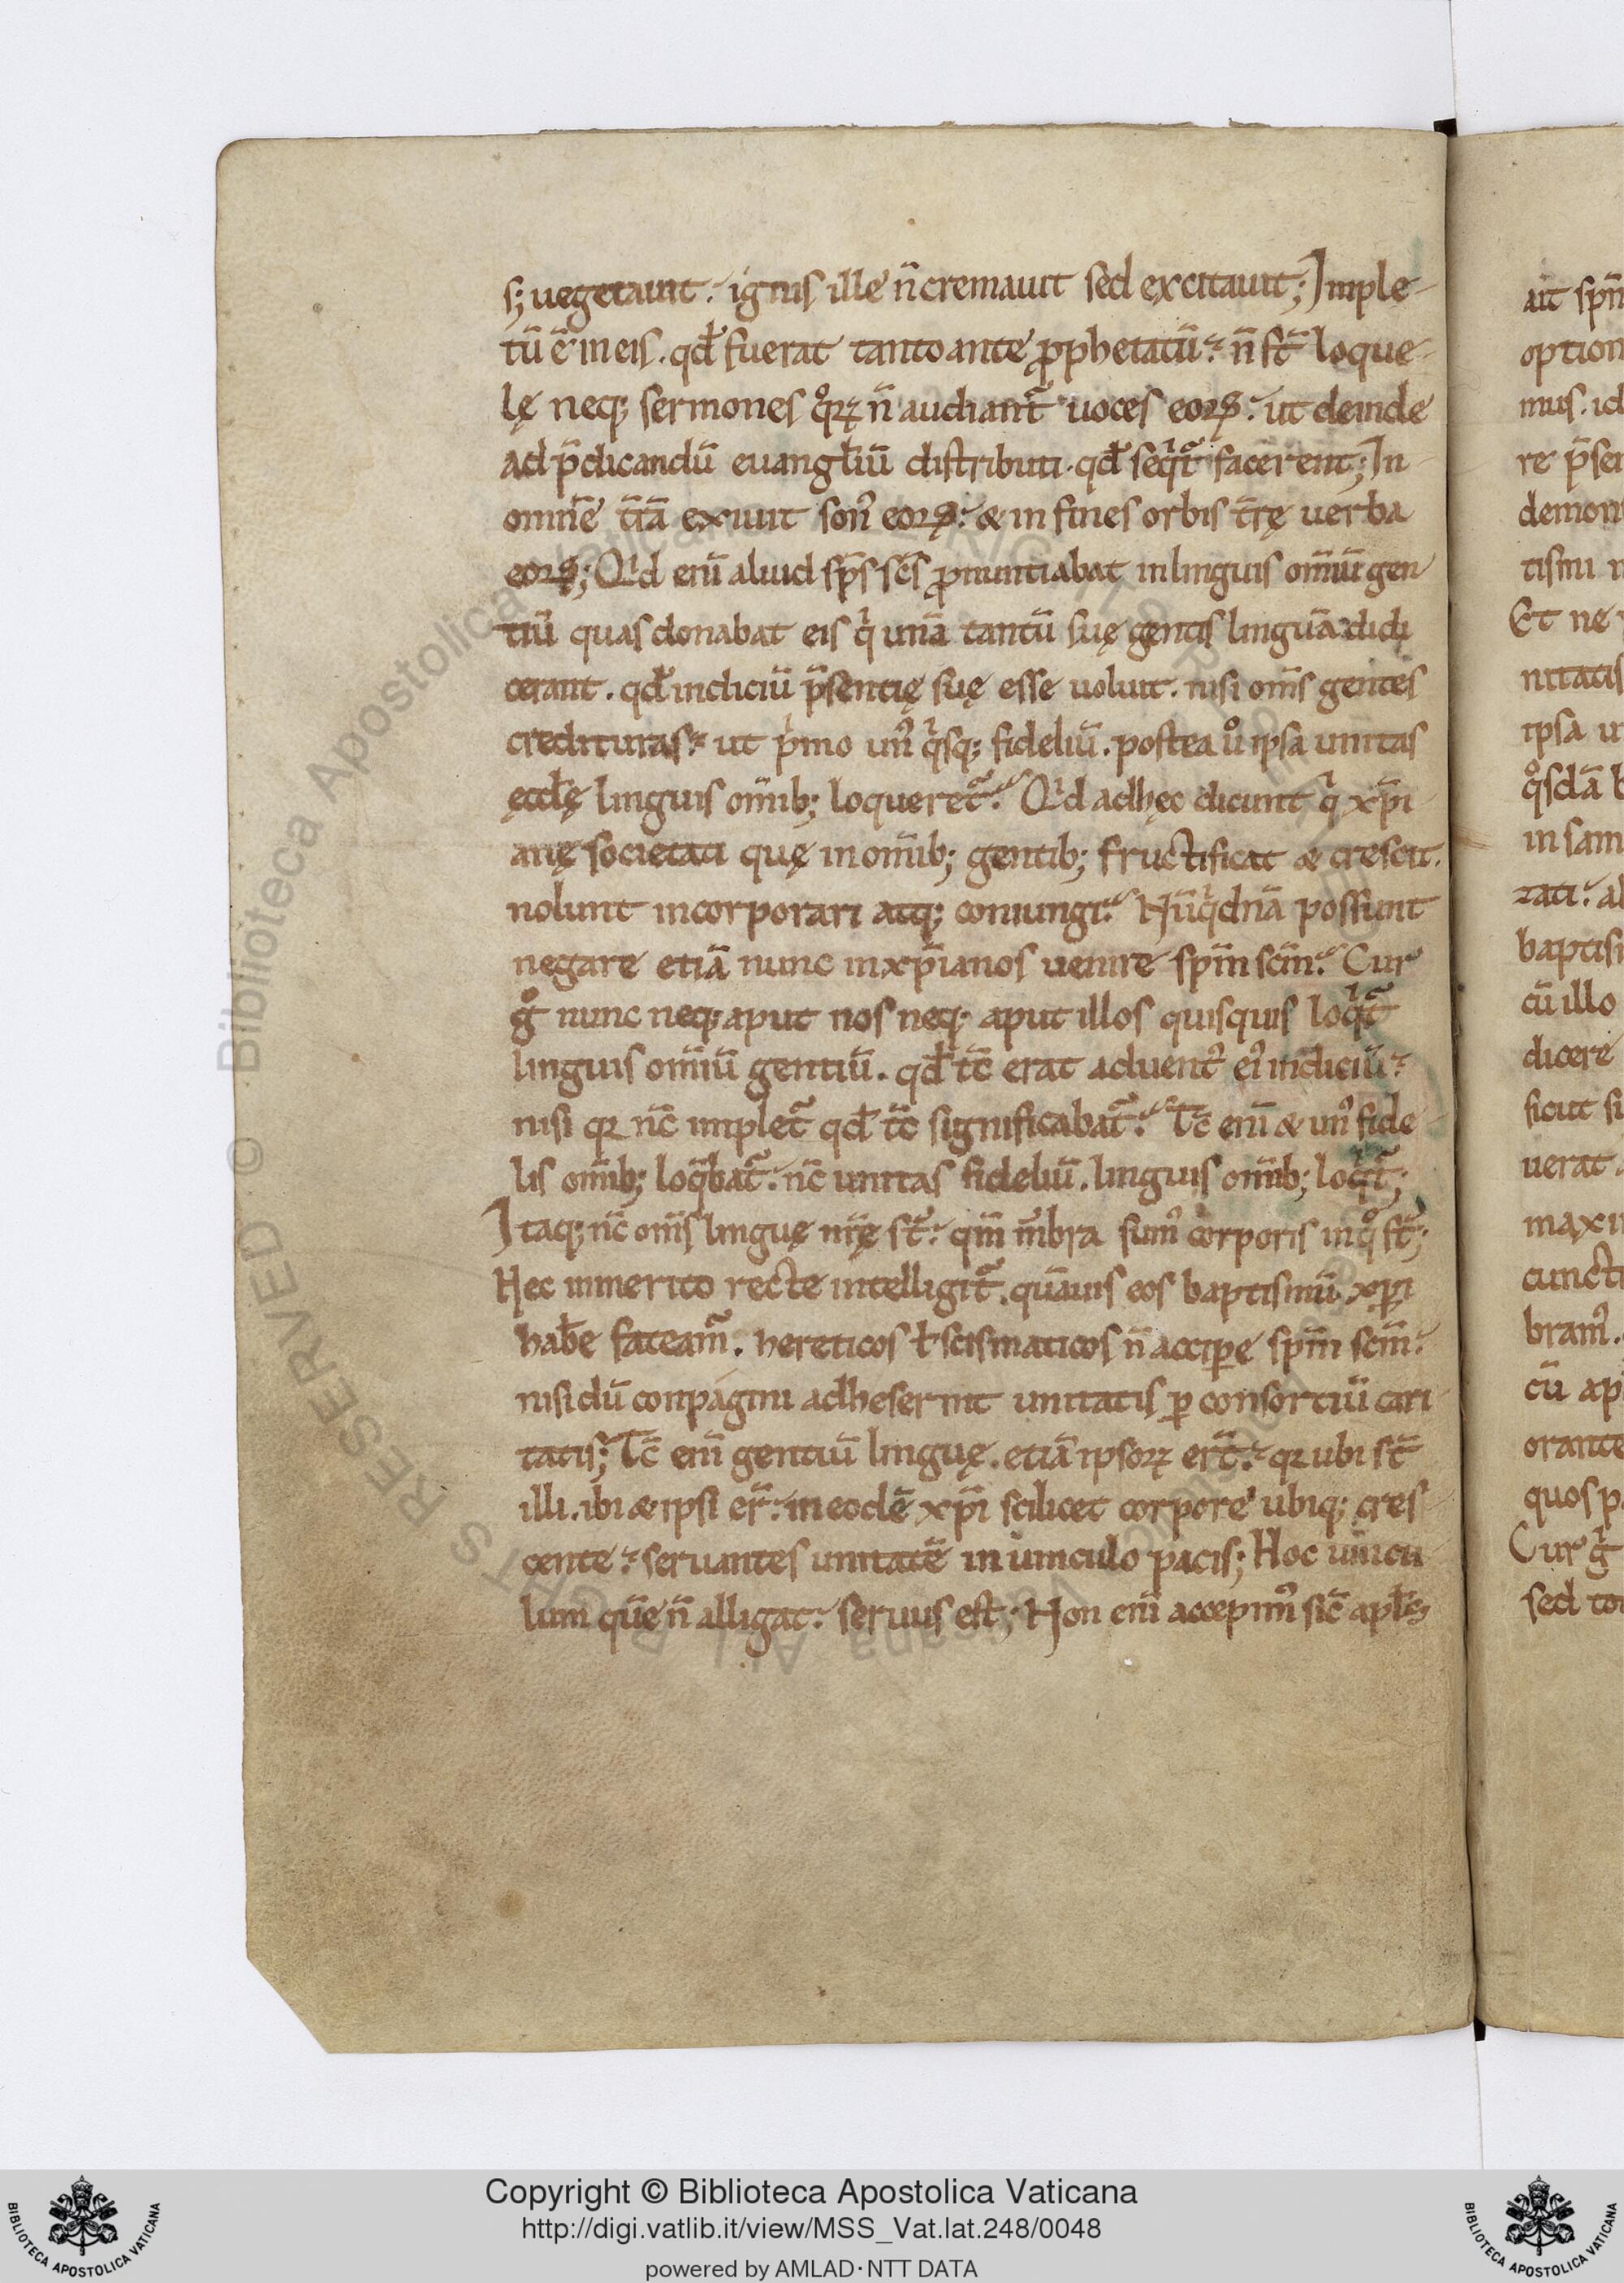 s; uegetauit. ignis ille n̄ cremauit sed excitauit; Imple-
tū ē in eis. qđ fuerat tanto ante ꝓphetatū. n̄ st̄ loque-
lę neq; sermones qͦꝝ n̄ audiant᷑ uoces eoꝝ. ut deinde
ad p̄dicandū euangl̄iū distributi. qđ seqⁱt᷑ facerent; In
omnē t̄rā exiuit son᾽ eoꝝ. & in fines orbis t̄rę uerba
eoꝝ; Qⁱd enī aliud sp̄s sc̄s ꝓnuntiabat in linguis om̄iū gen
tiū quas donabat eis qⁱ unā tantū suę gentis linguā didi
cerant. qđ indiciū p̄sentię suę esse uoluit. nisi om̄s gentes
credituras. ut pⁱmo un᾽ qⁱsq; fideliū. postea uͦ ipsa unitas
ęccl̄ę linguis om̄ib; loqueret᷑. Qⁱd adhęc dicunt qⁱ xp̄i
anę societati quę in om̄ib; gentib; fructificat & crescit.
nolunt incorporari atq; coniungi. Nūqⁱdnā possunt
negare etiā nunc in xp̄ianos uenire sp̄m sc̄m. Cur
gͦ nunc neq; aput nos neq; aput illos quisquis loqⁱt᷑
linguis om̄iū gentiū. qđ tc̄ erat aduent᾽ ei᾽ indiciū.
nisi qꝛ nc̄ implet᷑ qđ tc̄ significabat᷑. Tc̄ enī & un᾽ fide
lis om̄ib; loq̄bat᷑. nc̄ unitas fideliū. linguis om̄ib; loqⁱt᷑;
Itaq; nc̄ om̄s linguę nr̄ę st̄. qm̄ m̄bra sum᾽ corporis in qͦ st̄;
Hec inmerito recte intelligit᷑. quāuis eos baptismū xp̄i
habēe fateam᷑. hereticos ł scismaticos n̄ accipe sp̄m sc̄m.
nisi dū conpagini adheserint unitatis ꝑ consortiū cari
tatis; Tc̄ enī gentiū linguę. etiā ipsoꝝ er̄t. qꝛ ubi st̄
illi. ibi & ipsi er̄. in eccl̄ē xp̄i scilicet corpore ubiq; cres
cente. seruantes unitatē in uinculo pacis; Hoc uincu
lum quē n̄ alligat. seruus est; Non enī accepim᾽ sic̄ apl̄s
ait sp̄m
option
mus. id
re p̄sen
demon
tismi
Et ne
nitatis
ipsa u
qͦsdā b
in sam
zati. al
baptis
cū illo
dicere
sicut si
uerat
maxi
cuncti
bram᾽.
cū ap
orante
quos p
Cur gͦ
sed to
© Biblioteca Apostolica Vaticana ALL RIGHTS RESERVED
Copyright © Biblioteca Apostolica Vaticana
http://digi.vatlib.it/view/MSS_Vat.lat.248/0048
powered by AMLAD·NTT DATA
BIBLIOTECA APOSTOLICA VATICANA
BIBLIOTECA APOSTOLICA VATICANA